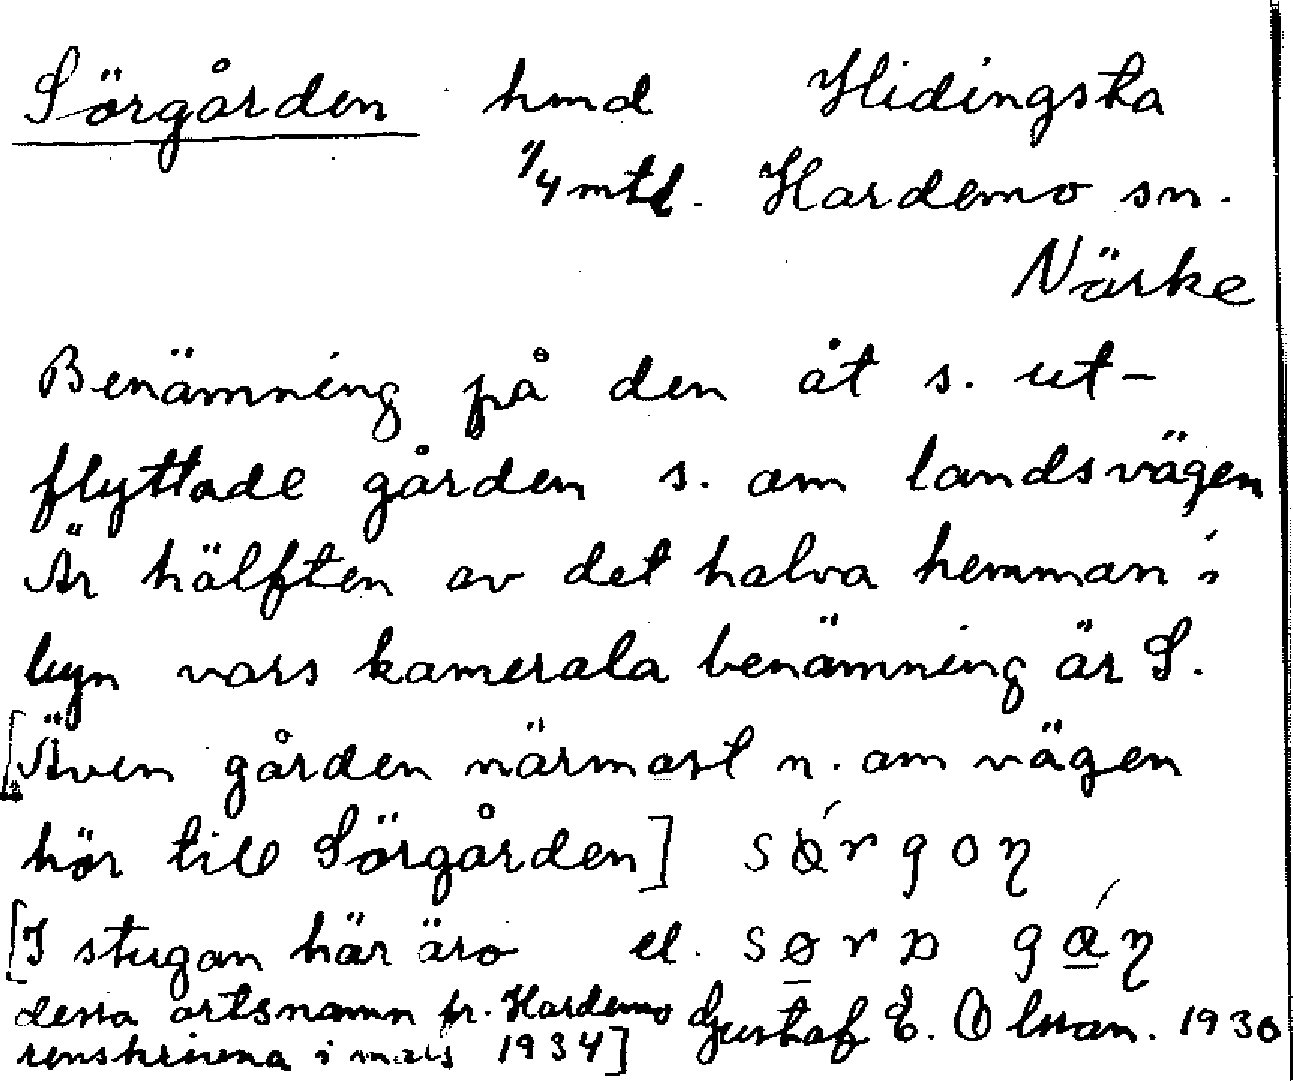 Sörgården hmd Hidingsta
1/4 mtl. Hardemo sn.
Närke
Benämning på den åt s. ut-
flyttade gården s. om landsvägen
Är hälften av det halva hemman i
byn vars kamerala benämning är S.
[Även gården närmast n. om vägen
hör till Sörgården]
[I stugan här äro el.
dessa ortsnamn fr. Hardemo Gustaf E. Olsson. 1930
renskrivna i mars 1934]